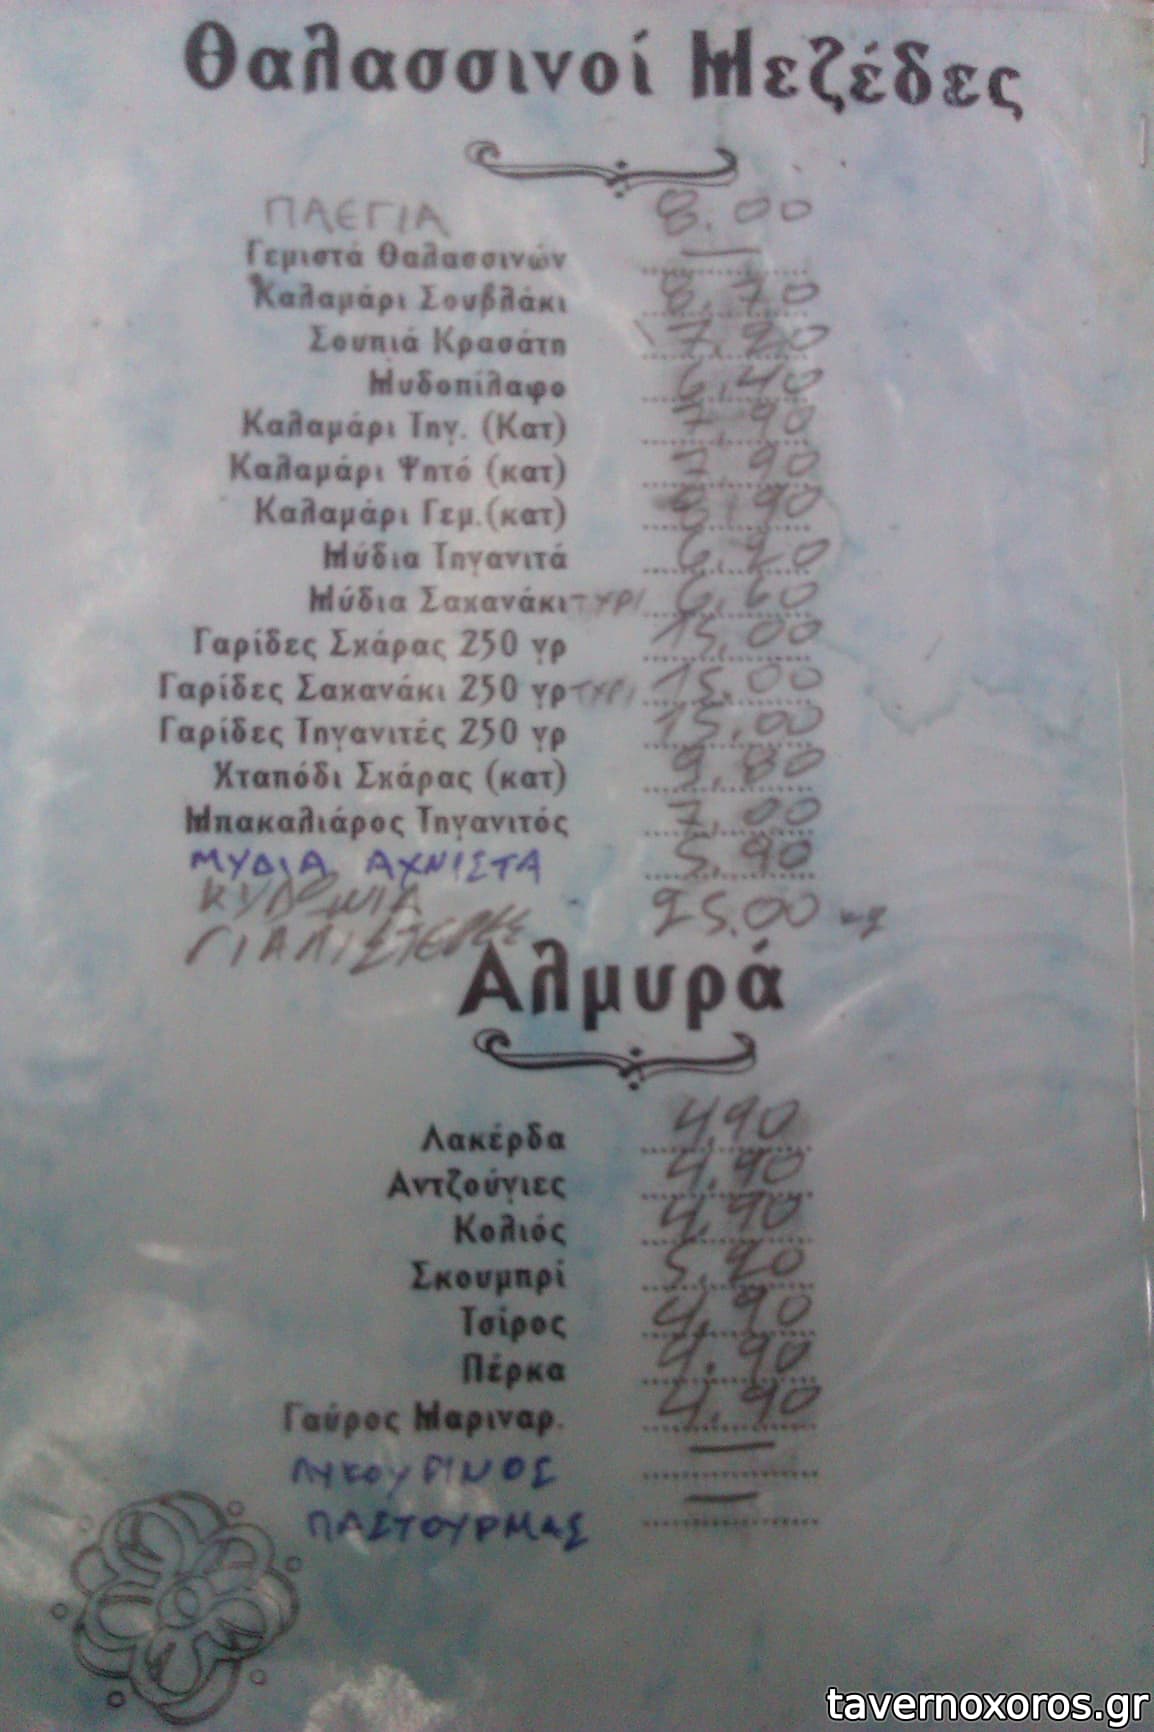 Θαλασσινοί Μεζέδες
ΠΑΕΓΙΑ 8.00
Γεμιστά Θαλασσινών —
Καλαμάρι Σουβλάκι 8,70
Σουπιά Κρασάτη 7,20
Μυδοπίλαφο 6,40
Καλαμάρι Τηγ. (Κατ) 7,90
Καλαμάρι Ψητό (κατ) 7,90
Καλαμάρι Γεμ.(κατ) 8,90
Μύδια Τηγανιτά 6,20
Μύδια Σαχανάκι ΤΥΡΙ 6,60
Γαρίδες Σχάρας 250 γρ 15,00
Γαρίδες Σαχανάκι 250 γρ ΤΥΡΙ 15,00
Γαρίδες Τηγανιτές 250 γρ 15,00
Χταπόδι Σχάρας (κατ) 9,80
Μπακαλιάρος Τηγανιτός 7,00
ΜΥΔΙΑ ΑΧΝΙΣΤΑ 5,90
ΚΥΔΩΝΙΑ 25.00 κg
ΓΙΑΛΙΣΤΕΡΕΣ
Αλμυρά
Λακέρδα 4,90
Αντζούγιες 4,90
Κολιός 4,90
Σκουμπρί 5,20
Τσίρος 4,90
Πέρκα 4,90
Γαύρος Μαριναρ. 4,90
ΛΥΚΟΥΡΙΝΟΣ —
ΠΑΣΤΟΥΡΜΑΣ —
tavernoxoros.gr